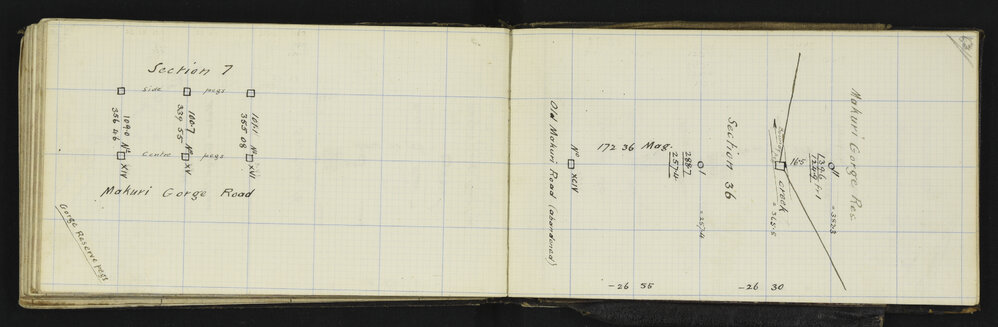 Section 7
side pegs
1090
356 46
No XIV
100.7
339 55
No XV
101.1
355 08
No XVI
Centre pegs
Makuri Gorge Road
Gorge Reserve pegs
63
Old Makuri Road (abandoned)
No XCIV
172 36 Mag.
2887
2574
= 2574
Section 36
creek
165
= 3655
1396
1249
= 3823
Makuri Gorge Res.
-26 55
-26 30